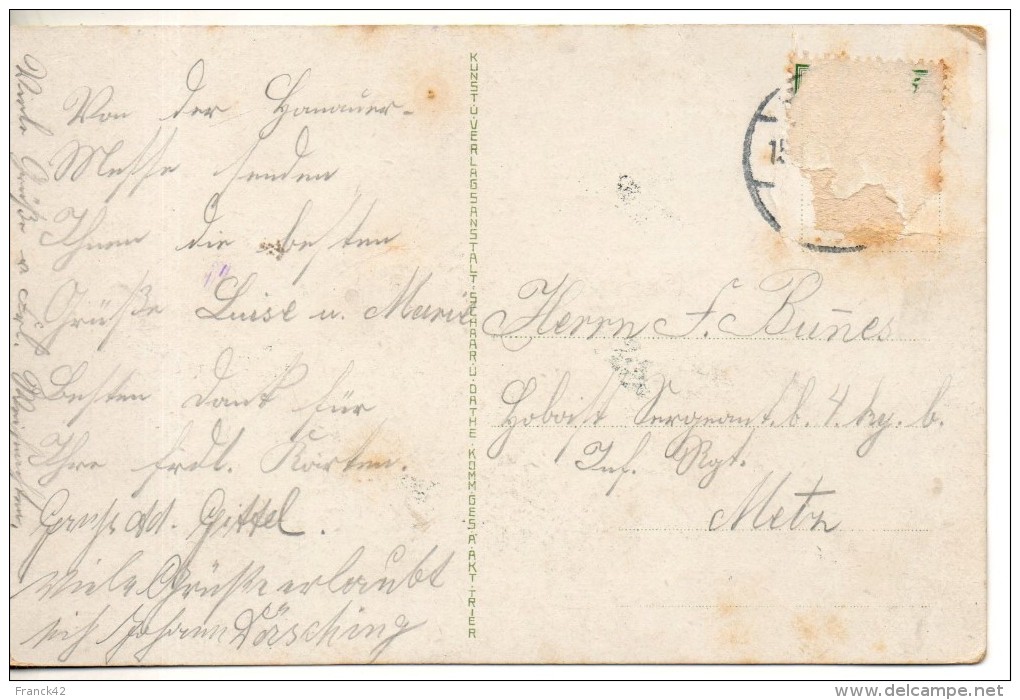 Von der Hanauer-
Messe senden
Ihnen die besten
Grüße Luise u. Marie
Besten Dank für
Ihre frdl. Karten.
Gittel.
Viele Grüße erlaubt
sich Johann Dörsching
Viele Grüße
KUNST-U-VERLAGSANSTALT-SCHAAR-U-DATHE-KOMM.GES.A-AKT-TRIER
15
Herrn F. Buñes
Hoboist Sergeant. b. 4. kg. b.
Inf. Rgt.
Metz
Franck42
delcampe.net